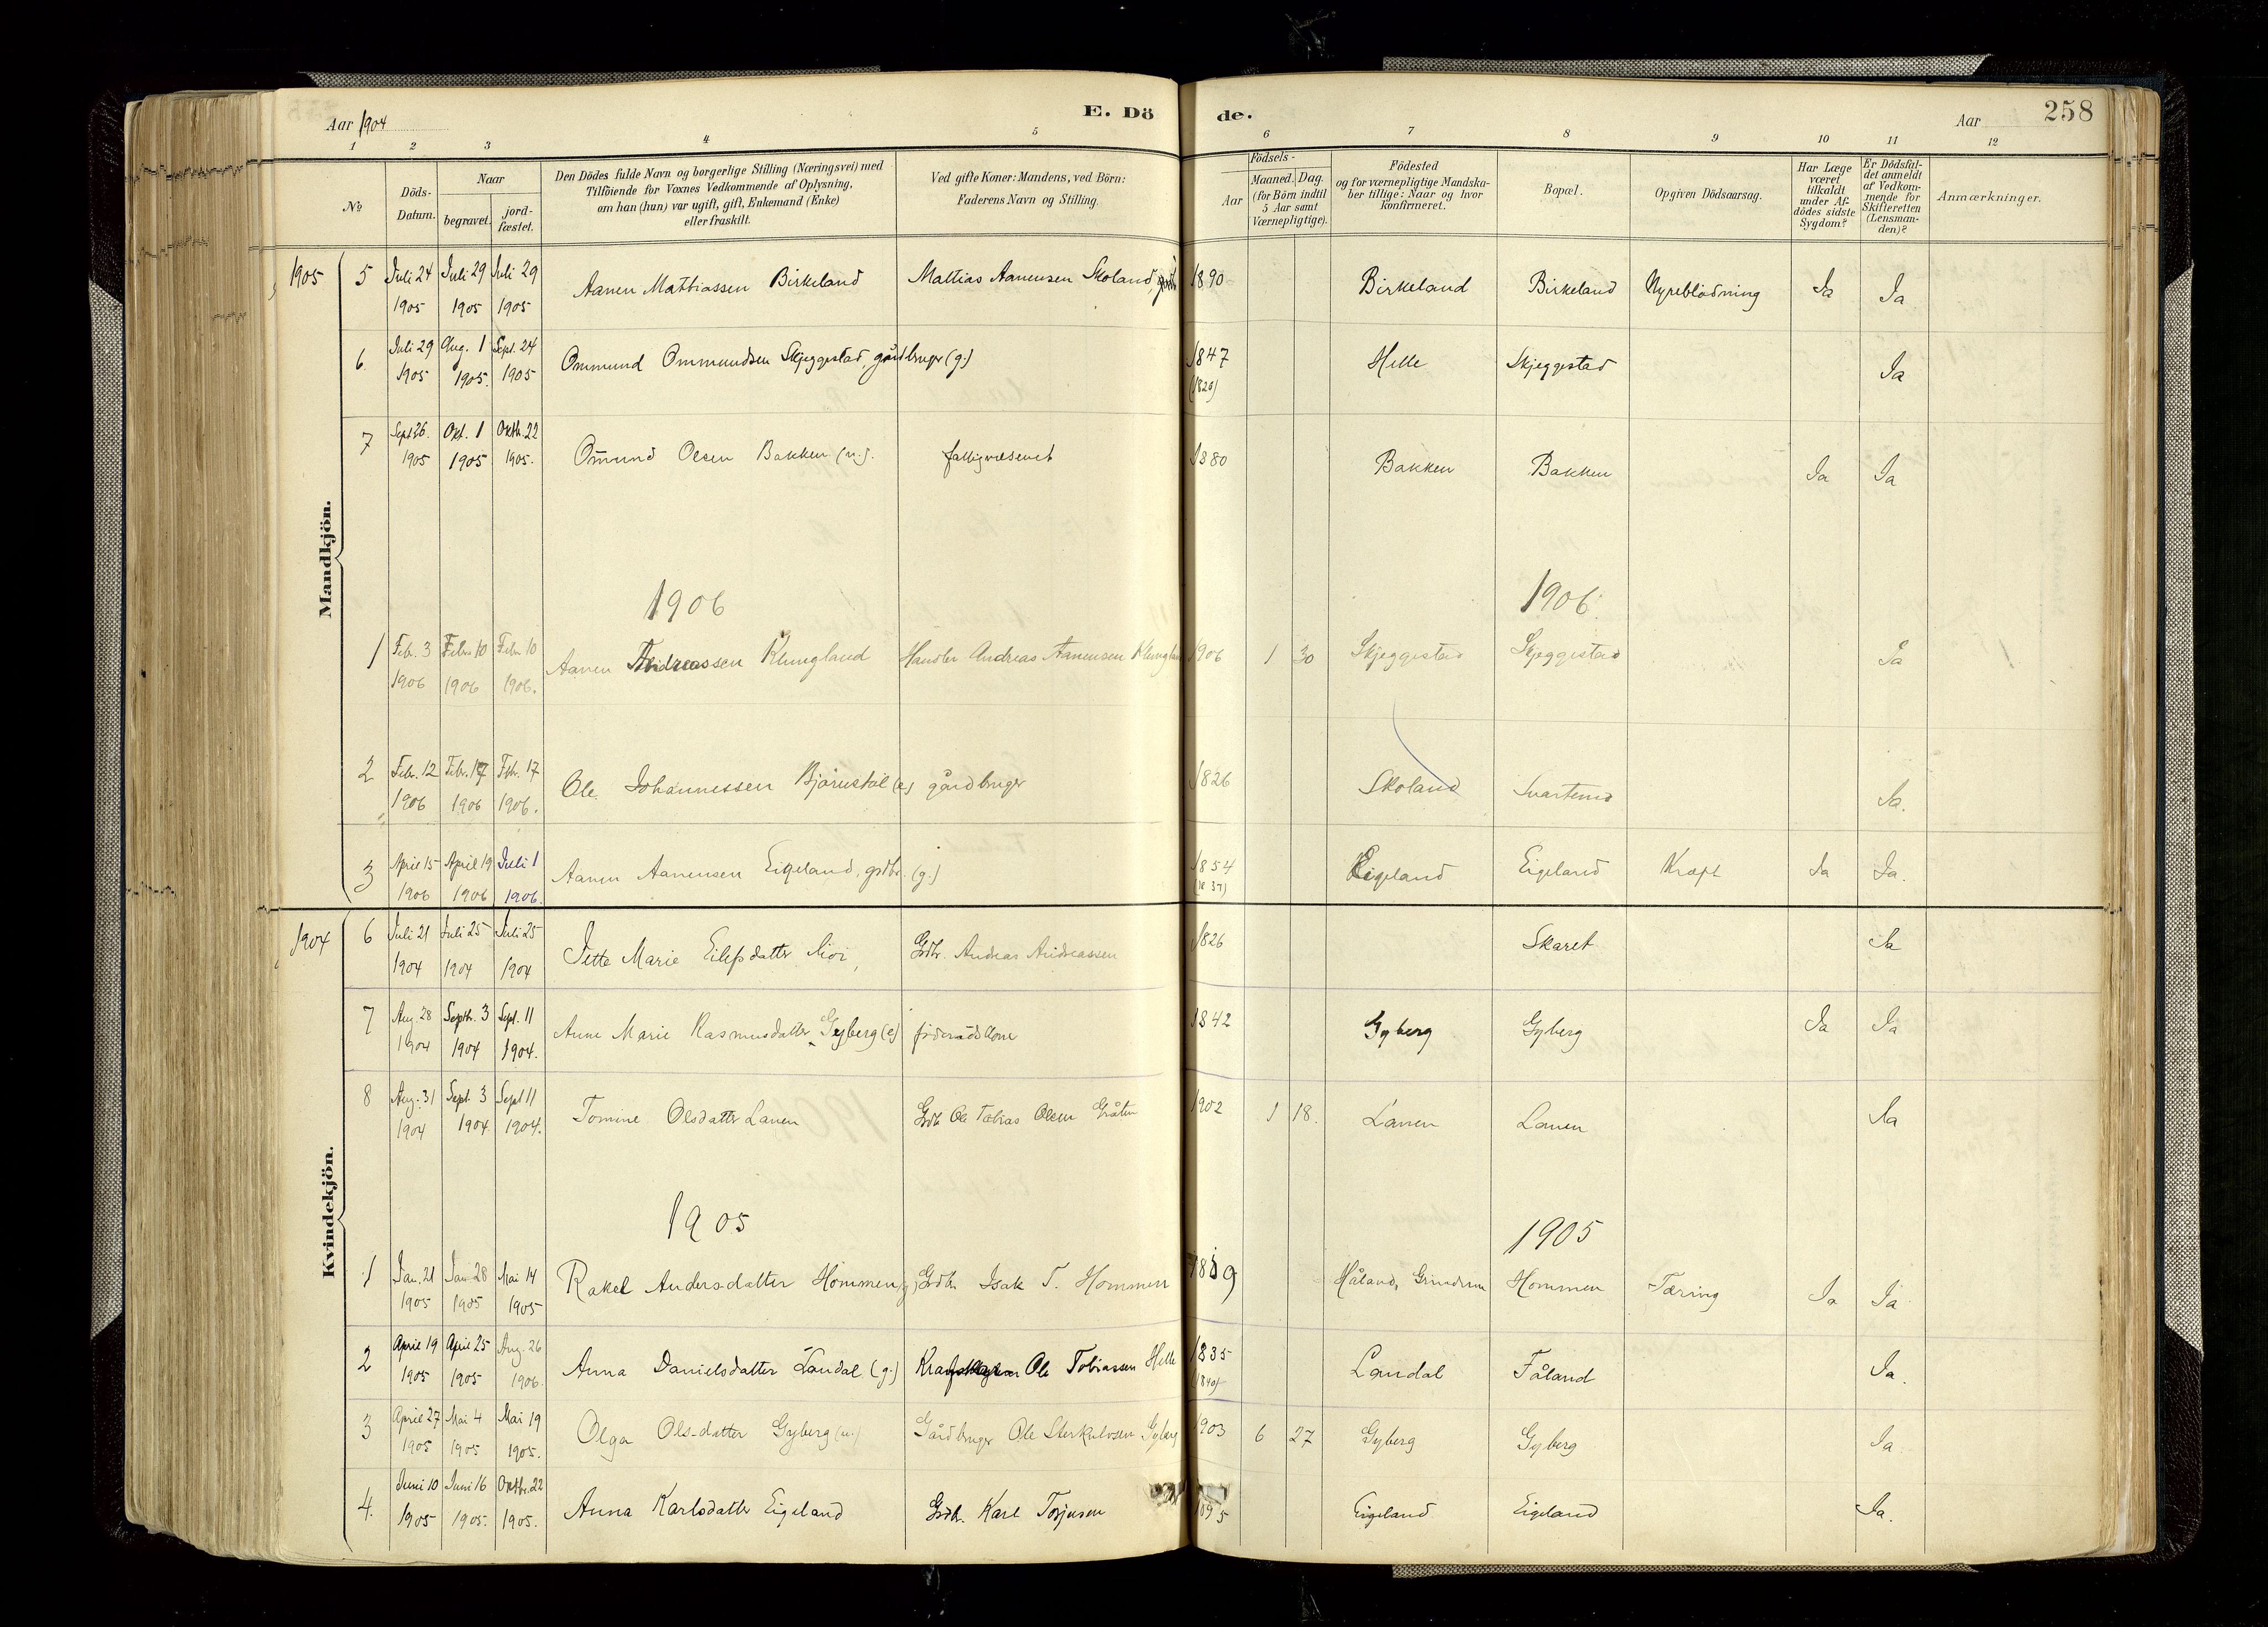 Aar 1904 E. Dö de. Aar 258
1 2 3 4 5 6 7 8 9 10 11 12
№ Döds-Datum. Naar begravet. jord-fæstet. Den Dödes fulde Navn og borgerlige Stilling (Næringsvei) med Tilföiende for Voxnes Vedkommende af Oplysning, om han (hun) var ugift, gift, Enkemand (Enke) eller fraskilt. Ved gifte Koner: Mandens, ved Börn: Faderens Navn og Stilling. Födsels- Aar Maaned. Dag. (for Börn indtil 5 Aar samt Værnepligtige). Födested og for værnepligtige Mandska-ber tillige: Naar og hvor konfirmeret. Bopæl. Opgiven Dödsaarsag. Har Læge været tilkaldt under Af-dödes sidste Sygdom? Er Dödsfal-det anmeldt af Vedkom-mende for Skifteretten (Lensman-den)? Anmærkninger.
Mandkjön.
1905 5 Juli 24 1905 Juli 29 1905 Juli 29 1905 Aanen Mathiassen Birkeland Mathias Aanensen Skoland, 1890 Birkeland Birkeland Nyreblødning Ja Ja
6. Juli 29 1905 Aug. 1 1905. Sept. 24 1905 Ommund Ommundsen Skjeggestad, gårdbruger (g.) 1847 (1820) Helle Skjeggestad Ja
7 Sept 26. 1905 Okt. 1 1905 Oktb. 22 1905. Ommund Olsen Bakken (u.). fattigvæsenet 1880 Bakken Bakken Ja Ja
1906 1906.
1 Feb. 3 1906 Febr 10 1906 Febr 10 1906. Aanen Andreassen Klungland Handler Andreas Aanensen Klungland 1906 1 30 Skjeggestad Skjeggestad Ja
2 Febr. 12 1906 Febr. 17 1906 Febr. 17 1906. Ole Johannessen Bjørnestøl (e) gårdbruger 1826 Skoland Svartemo Ja.
3 April 15 1906 April 19 1906 Juli 1 1906. Aanen Aanensen Eigeland, grdbr. (g.) 1854 Eigeland Eigeland Kræft Ja Ja.
Kvindekjön.
1904 6 Juli 21 1904 Juli 25 1904 Juli 25 1904 Jette Marie Eilefsdatter Moi, Grdbr. Andreas Andreassen 1826 Skaret Ja
7 Aug. 28 1904 Septb. 3 1904 Sept. 11 1904. Anne Marie Rasmusdatter Gyberg (e) føderådskone 1842 Gyberg Gyberg Ja Ja
8 Aug. 31 1904 Sept. 3 1904 Sept 11 1904. Tomine Olsdatter Lanen Grdb Ole Tobias Olsen 1902 1 18. Lanen Lanen Ja
1905 1905
1 Jan. 21 1905 Jan 28 1905 Mai 14 1905 Rakel Andersdatter Hommen (g) Grdbr. Isak T. Hommen Håland, Grindum Hommen Tæring Ja Ja
2 April 19 1905 April 25 1905 Aug. 26 1906. Anna Danielsdatter Landal (g.) Ole Tobiassen Helle 1835 (1840) Landal Fåland Ja.
3 April 27 1905 Mai 4 1905 Mai 19 1905. Olga Olsdatter Gyberg (u.) Gårdbruger Ole Sterkulvsen Gyberg 1903 6 27 Gyberg Gyberg Ja
4. Juni 10 1905 Juni 16 1905. Oktbr. 22 1905. Anna Karlsdatter Eigeland Grdbr. Karl Torjusen 1895 Eigeland Eigeland Ja.